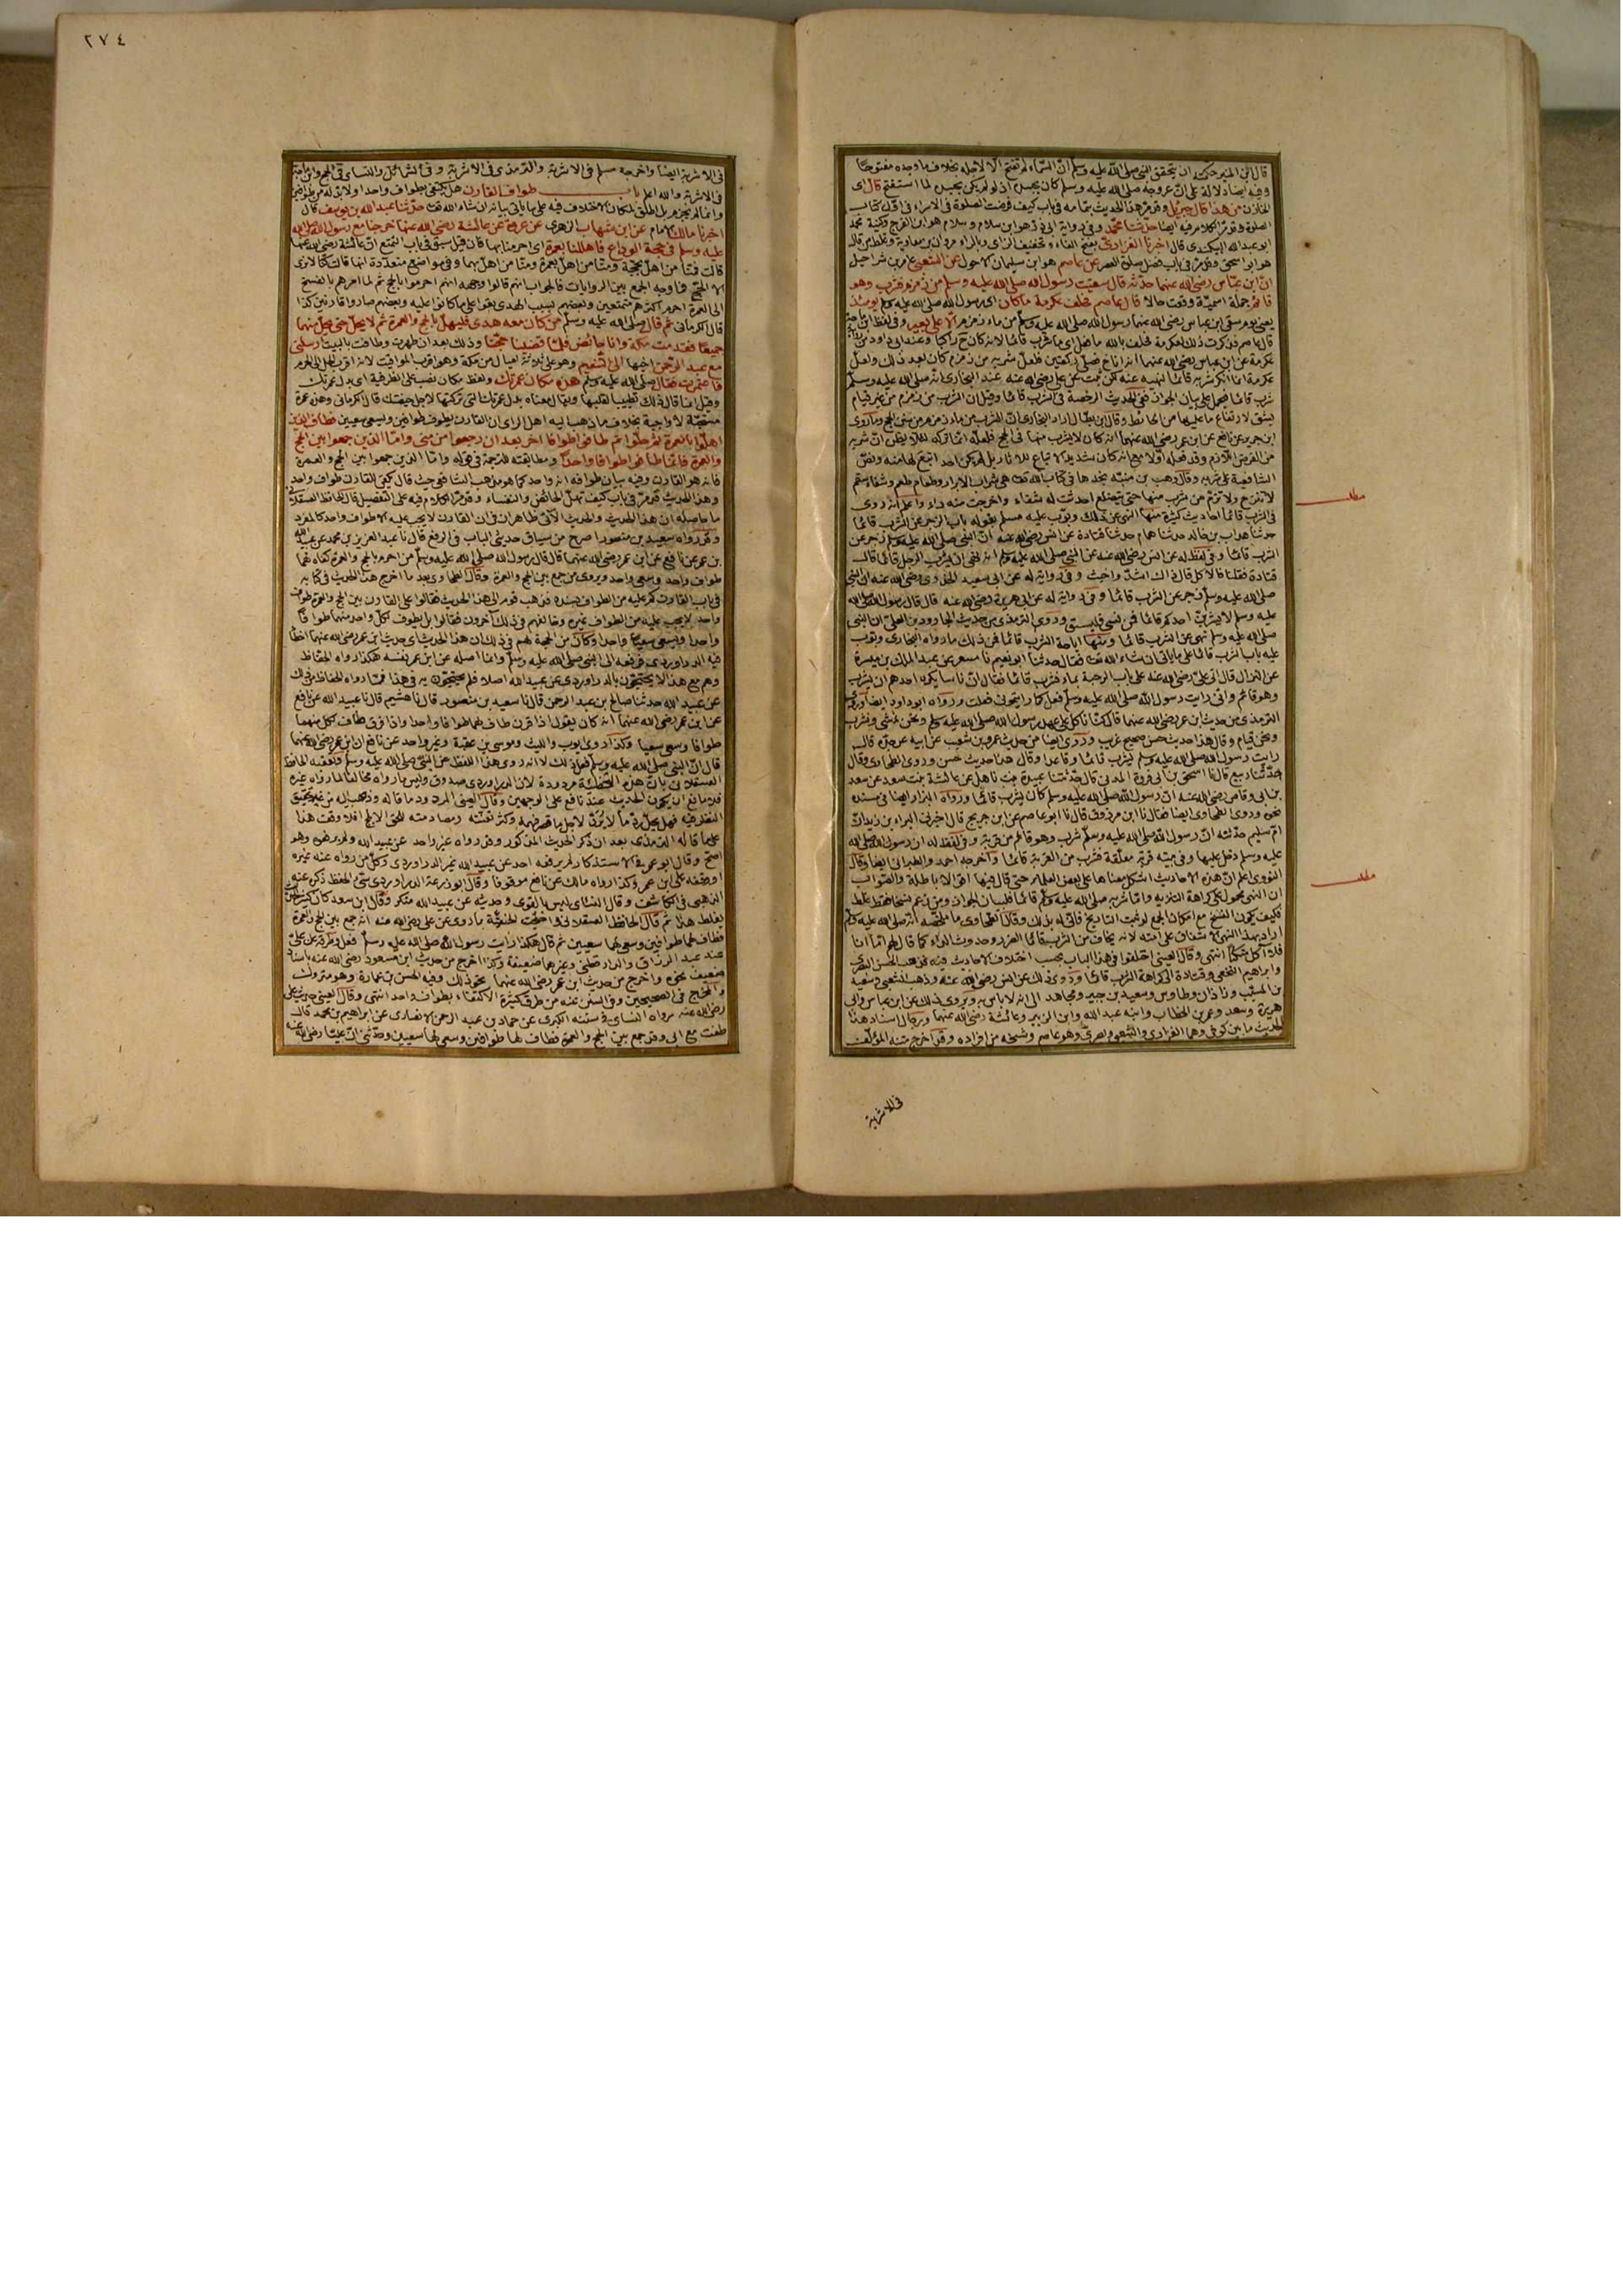 قال ابن المنير حكمته ان يتحقق النبي صلى الله عليه وسلم ان السماء لم تفتح الا لاجله بخلاف ما وجده مفتوحا
وفيه ايضا دلالة على ان عروجه صلى الله عليه وسلم كان بجسده اذ لو لم يكن بجسده لما استفتح قال اى
الخازن من هذا قال جبريل وقد مر هذا الحديث بتمامه فى باب كيف فرضت الصلوة فى الاسراء فى اول كتاب
الصلوة وقد مر الكلام فيه ايضا حدثنا محمد وفى رواية ابى ذر هو ابن سلام وسلام هو ابن الفرج وكنية محمد
ابو عبد الله البيكندى قال اخبرنا الفزارى بفتح الفاء وتخفيف الزاى وبالراء مروان بن معاوية وغلط من قال
هو ابو اسحق وقد مر فى باب فضل صلوة العصر عن عاصم هو ابن سليمان الاحول عن الشعبى عامر بن شراحيل
ان ابن عباس رضى الله عنهما حدثه قال سقيت رسول الله صلى الله عليه وسلم من زمزم فشرب وهو
قائم جملة اسمية وقعت حالا قال عاصم فحلف عكرمة ما كان اى رسول الله صلى الله عليه وسلم يومئذ
يعنى يوم سقى ابن عباس رضى الله عنهما رسول الله صلى الله عليه وسلم من ماء زمزم الا على بعير وفى لفظ ابن ماجة
قال عاصم فذكرت ذلك لعكرمة فحلف بالله ما فعل اى ما شرب قائما لانه كان ح راكبا وعند ابى داود من رواية
عكرمة عن ابن عباس رضى الله عنهما انه اناخ فصلى ركعتين فلعل شربه من زمزم كان بعد ذلك ولعل
عكرمة انما انكر شربه قائما لنهيه عنه لكن ثبت عن على رضى الله عنه عند البخارى انه صلى الله عليه وسلم
شرب قائما فيحمل على بيان الجواز ففى الحديث الرخصة فى الشرب قائما وقيل ان الشرب من زمزم من غير قيام
يشق لارتفاع ما عليها من الحائط وقال ابن بطال اراد البخارى ان الشرب من ماء زمزم من سنن الحج وما روى
ابن جريج عن نافع عن ابن عمر رضى الله عنهما انه كان لا يشرب منها فى الحج فلعله انما تركه لئلا يظن ان شربه
من الفرض اللازم وقد فعله اولا مع انه كان شديد الاتباع للآثار بل لم يكن احد اتبع لها منه ونص
الشافعية على شربه وقال وهب بن منبه نجدها فى كتاب الله تعالى هى شراب الابرار وطعام طعم وشفاء سقم
لا تنزح ولا تذم من شرب منها حتى يتضلع احدثت له شفاء واخرجت منه داء واعلم انه روى
فى الشرب قائما احاديث كثيرة منها النهى عن ذلك وبوب عليه مسلم بقوله باب الزجر عن الشرب قائما
حدثنا هداب بن خالد حدثنا همام حدثنا قتادة عن انس رضى الله عنه ان النبى صلى الله عليه وسلم زجر عن
الشرب قائما وفى لفظ له عن انس رضى الله عنه عن النبى صلى الله عليه وسلم انه نهى ان يشرب الرجل قائما قال
قتادة فقلنا فالاكل قال ذاك اشد واخبث وفى رواية له عن ابى سعيد الخدرى رضى الله عنه ان النبى
صلى الله عليه وسلم زجر عن الشرب قائما وفى رواية له عن ابى هريرة رضى الله عنه قال قال رسول الله صلى الله
عليه وسلم لا يشربن احدكم قائما فمن نسى فليستق وروى الترمذى من حديث الجارود بن المعلى ان النبى
صلى الله عليه وسلم نهى عن الشرب قائما ومنها اباحة الشرب قائما فمن ذلك ما رواه البخارى وبوب
عليه باب الشرب قائما على ما ياتى ان شاء الله تعالى فقال حدثنا ابو نعيم نا مسعر عن عبد الملك بن ميسرة
عن النزال قال اتى على رضى الله عنه على باب الرحبة بماء فشرب قائما فقال ان ناسا يكره احدهم ان يشرب
وهو قائم وانى رايت رسول الله صلى الله عليه وسلم فعل كما رايتمونى فعلت ورواه ابو داود ايضا وروى
الترمذى من حديث ابن عمر رضى الله عنهما قال كنا ناكل على عهد رسول الله صلى الله عليه وسلم ونحن نمشى ونشرب
ونحن قيام وقال هذا حديث حسن صحيح غريب وروى ايضا من حديث عمرو بن شعيب عن ابيه عن جده قال
رايت رسول الله صلى الله عليه وسلم يشرب قائما وقاعدا وقال هذا حديث حسن وروى الطحاوى وقال
حدثنا ربيع قال نا اسحق بن ابى فروة المدنى قال حدثتنا عبيدة بنت نابل عن عائشة بنت سعد عن سعد
بن ابى وقاص رضى الله عنه ان رسول الله صلى الله عليه وسلم كان يشرب قائما ورواه البزار ايضا فى مسنده
نحوه وروى الطحاوى ايضا فقال نا ابن مرزوق قال نا ابو عاصم عن ابن جريج قال اخبرنى البراء بن زيد ان
ام سليم حدثته ان رسول الله صلى الله عليه وسلم شرب وهو قائم من قربة وفى لفظ له ان رسول الله صلى الله
عليه وسلم دخل عليها وفى بيته قربة معلقة فشرب من القربة قائما واخرجه احمد والطبرانى ايضا وقال
النووى اعلم ان هذه الاحاديث اشكل معناها على بعض العلماء حتى قال فيها اقوالا باطلة والصواب
ان النهى محمول على كراهة التنزيه واما شربه صلى الله عليه وسلم قائما فلبيان الجواز ومن زعم نسخا فقد غلط
فكيف يكون النسخ مع امكان الجمع لو ثبت التاريخ فانى له بذلك وقال الطحاوى ما ملخصه انه صلى الله عليه وسلم
اراد بهذا النهى الاشفاق على امته لانه يخاف من الشرب قائما الضرر وحدوث الداء كما قال لهم اما انا
فلا آكل متكئا انتهى وقال العينى اختلفوا فى هذا الباب بحسب اختلاف الاحاديث فيه فذهب الحسن البصرى
وابراهيم النخعى وقتادة الى كراهة الشرب قائما وروى ذلك عن انس رضى الله عنه وذهب الشعبى وسعيد
بن المسيب وزاذان وطاوس وسعيد بن جبير ومجاهد الى انه لا باس به ويروى ذلك عن ابن عباس وابى
هريرة وسعد وعمر بن الخطاب وابنه عبد الله وابن الزبير وعائشة رضى الله عنهما ورجال اسناد هذا
الحديث ما بين كوفى وهما الفزارى والشعبى وبصرى وهو عاصم وشيخه من افراده وقد اخرج متنه المؤلف
فى الاشربة
مطلب
مطلب
٢٧٤
فى الاشربة ايضا واخرجه مسلم فى الاشربة والترمذى فى الاشربة وفى الشمائل والنسائى فى الحج وابن ماجة
فى الاشربة والله اعلم باب طواف القارن هل يكتفى بطواف واحد اولا بد له من طوافين
وانما لم يجزم بل اطلق لمكان الاختلاف فيه على ما ياتى بيانه ان شاء الله تعالى حدثنا عبد الله بن يوسف قال
اخبرنا مالك الامام عن ابن شهاب الزهرى عن عروة عن عائشة رضى الله عنها خرجنا مع رسول الله صلى الله
عليه وسلم فى حجة الوداع فاهللنا بعمرة اى احرمنا بها فان قيل سبق فى باب التمتع ان عائشة رضى الله عنها
قالت فمنا من اهل بحجة ومنا من اهل بعمرة ومنا من اهل بهما وفى مواضع متعددة انها قالت كنا لا نرى
الا الحج فما وجه الجمع بين الروايات فالجواب انهم قالوا وجهه انهم احرموا بالحج ثم لما امرهم بالفسخ
الى العمرة احرم اكثرهم متمتعين وبعضهم بسبب الهدى بقوا على ما كانوا عليه وبعضهم صاروا قارنين كذا
قال الكرمانى ثم قال صلى الله عليه وسلم من كان معه هدى فليهل بالحج والعمرة ثم لا يحل حتى يحل منهما
جميعا فقدمت مكة وانا حائض فلما قضينا حجتنا وذلك بعد ان طهرت وطافت بالبيت ارسلنى
مع عبد الرحمن اخيها الى التنعيم وهو على ثلاثة اميال من مكة وهو اقرب المواقيت لانه اقرب الحل الى الحرم
فاعتمرت فقال صلى الله عليه وسلم هذه مكان عمرتك ولفظ مكان نصب على الظرفية اى بدل عمرتك
وقيل انما قال ذلك تطييبا لقلبها ويقال معناه بدل عمرتك التى تركتها لاجل حيضتك قال الكرمانى وهذه عمرة
مستحبة لا واجبة بخلاف ما ذهب اليه اهل الراى ان القارن يطوف طوافين ويسعى سعيين فطاف الذين
اهلوا بالعمرة ثم حلوا ثم طافوا طوافا اخر بعد ان رجعوا من منى واما الذين جمعوا بين الحج
والعمرة فانما طافوا طوافا واحدا ومطابقته للترجمة فى قوله واما الذين جمعوا بين الحج والعمرة
فانه هو القارن وفيه بيان طوافه انه واحد كما هو مذهب الشافعى حيث قال يكفى للقارن طواف واحد
وهذا الحديث قد مر فى باب كيف تهل الحائض والنفساء وقد مر الكلام فيه على التفصيل قال الحافظ العسقلانى
ما حاصله ان هذا الحديث والحديث الآتى ظاهران فى ان القارن لا يجب عليه الا طواف واحد كالمفرد
وقد رواه سعيد بن منصور اصرح من سياق حديثى الباب فى الرفع قال نا عبد العزيز بن محمد عن عبيد الله
بن عمر عن نافع عن ابن عمر رضى الله عنهما قال قال رسول الله صلى الله عليه وسلم من احرم بالحج والعمرة كفاه لهما
طواف واحد وسعى واحد ويروى من جمع بين الحج والعمرة وقال الطحاوى بعد ما اخرج هذا الحديث فى كتابه
فى باب القارن كم عليه من الطواف بسنده فذهب قوم الى هذا الحديث فقالوا على القارن بين الحج والعمرة طواف
واحد لا يجب عليه من الطواف غيره وخالفهم فى ذلك آخرون فقالوا بل يطوف لكل واحد منهما طوافا
واحدا ويسعى سعيا واحدا وكان من الحجة لهم فى ذلك ان هذا الحديث اى حديث ابن عمر رضى الله عنهما اخطأ
فيه الدراوردى فرفعه الى النبى صلى الله عليه وسلم وانما اصله عن ابن عمر نفسه هكذا رواه الحفاظ
وهم مع هذا لا يحتجون بالدراوردى عن عبيد الله اصلا فلم يحتجون به فى هذا فما رواه الحفاظ من ذلك
عن عبيد الله حدثنا صالح بن عبد الرحمن قال نا سعيد بن منصور قال نا هشيم قال نا عبيد الله عن نافع
عن ابن عمر رضى الله عنهما انه كان يقول اذا قرن طاف لهما طوافا واحدا واذا فرق طاف لكل منهما
طوافا وسعى سعيا وكذا روى ايوب والليث وموسى بن عقبة وغير واحد عن نافع ان ابن عمر رضى الله عنهما
قال ان النبى صلى الله عليه وسلم فعل ذلك لا انه روى هذا اللفظ عن النبى صلى الله عليه وسلم وتعقبه الحافظ
العسقلانى بان هذه التخطئة مردودة لان الدراوردى صدوق وليس ما رواه مخالفا لما رواه غيره
فلا مانع ان يكون الحديث عند نافع على الوجهين وقال العينى المردود ما قاله وذهب اليه من غير تحقيق
النظر فيه فهل يحل رد ما لا يرد لاجل ما قصر فهمه وكثر تعنته ومصادمته للحق الابلج افلا وقف هذا
على ما قاله الترمذى بعد ان ذكر الحديث المذكور وقد رواه غير واحد عن عبيد الله ولم يرفعوه وهو
اصح وقال ابو عمر فى الاستذكار لم يرفعه احد عن عبيد الله غير الدراوردى وكل من رواه عنه غيره
اوقفه على ابن عمر وكذا رواه مالك عن نافع موقوفا وقال ابو زرعة الدراوردى سيئ الحفظ ذكره عنه
الذهبى فى الكاشف وقال النسائى ليس بالقوى وحديثه عن عبيد الله منكر وقال ابن سعد كان كثير الحديث
يغلط هذا ثم قال الحافظ العسقلانى واحتجت الحنفية بما روى عن على رضى الله عنه انه جمع بين الحج والعمرة
فطاف لهما طوافين وسعى لهما سعيين ثم قال هكذا رايت رسول الله صلى الله عليه وسلم فعل وطرقه عن على
عند عبد الرزاق والدارقطنى وغيرهما ضعيفة وكذا اخرج من حديث ابن مسعود رضى الله عنه باسناد
ضعيف نحوه واخرج من حديث ابن عمر رضى الله عنهما نحو ذلك وفيه الحسن بن عمارة وهو متروك
والمخرج فى الصحيحين وفى السنن عنه من طرق كثيرة الاكتفاء بطواف واحد انتهى وقال العينى حديث على
رضى الله عنه رواه النسائى فى سننه الكبرى عن حماد بن عبد الرحمن الانصارى عن ابراهيم بن محمد قال
طفت مع ابى وقد جمع بين الحج والعمرة فطاف لهما طوافين وسعى لهما سعيين وحدثنى ان عليا رضى الله عنه